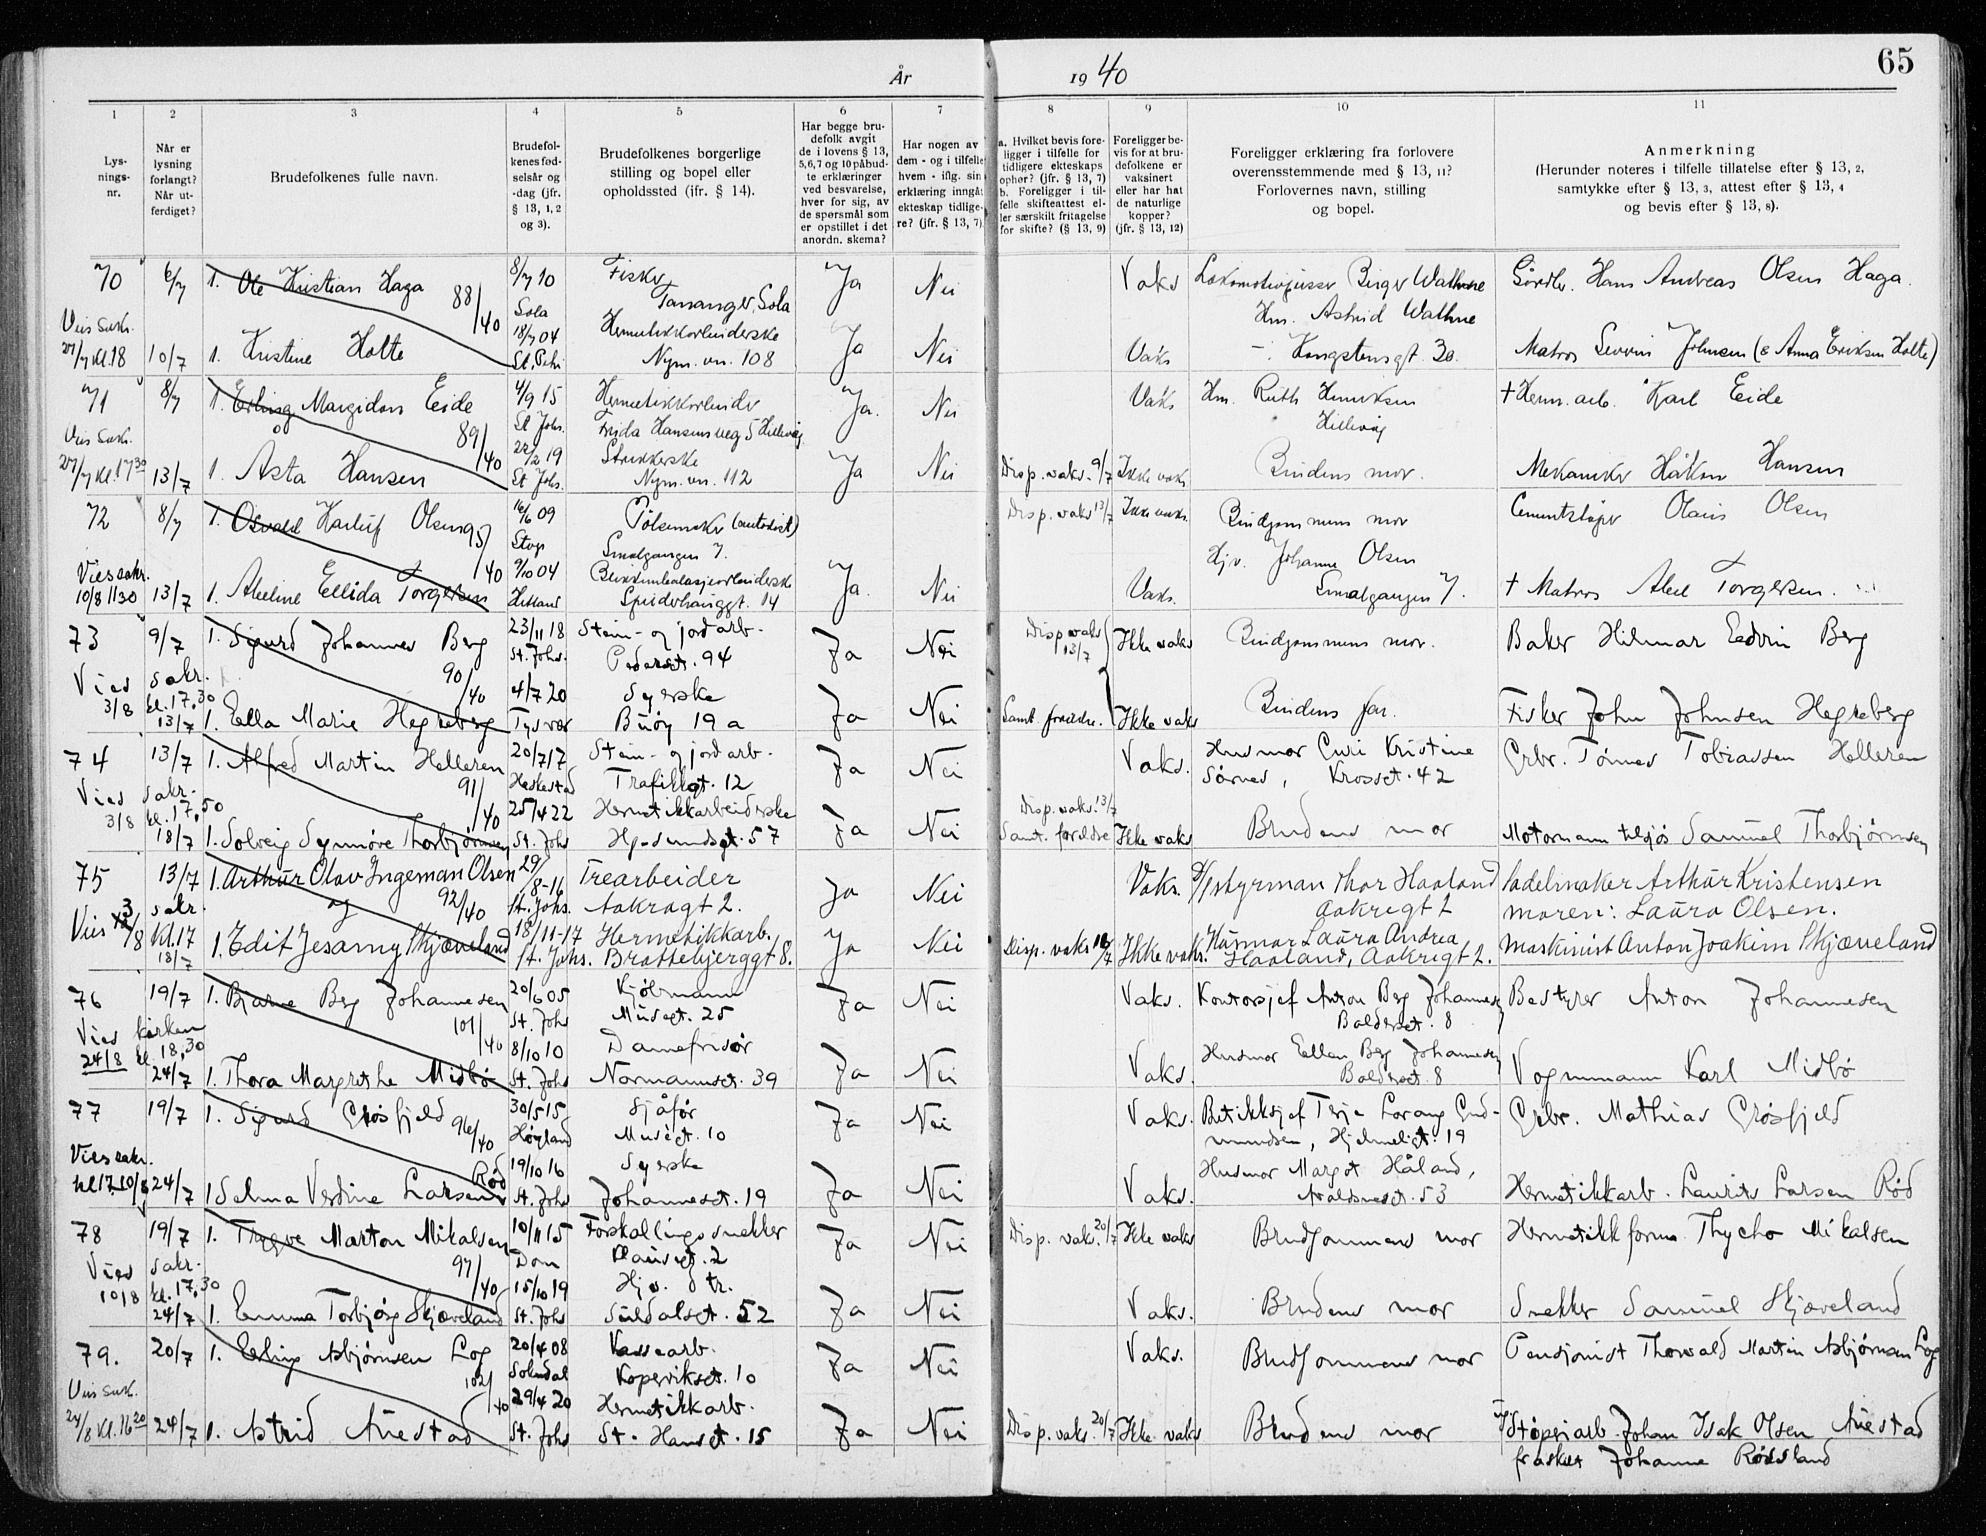 År 1940
65
1 2 3 4 5 6 7 8 9 10 11
Lys-
nings-
nr.
Når er
lysning
forlangt?
Når ut-
ferdiget?
Brudefolkenes fulle navn.
Brudefol-
kenes fød-
selsår og
-dag (jfr.
§ 13, 1, 2
og 3).
Brudefolkenes borgerlige
stilling og bopel eller
opholdssted (jfr. § 14).
Har begge bru-
defolk avgit
de i lovens § 13,
5,6,7 og 10 påbud-
te erklæringer
ved besvarelse,
hver for sig, av
de spørsmål som
er opstillet i det
anordn. skema?
Har nogen av
dem - og i tilfelle
hvem - iflg. sin
erklæring inngåt
ekteskap tidlige-
re? (jfr. § 13, 7)
a. Hvilket bevis fore-
ligger i tilfelle for
tidligere ekteskaps
ophør? (jfr. § 13, 7)
b. Foreligger i til-
felle skifteattest el-
ler særskilt fritagelse
for skifte? (§ 13, 9)
Foreligger be-
vis for at bru-
defolkene er
vaksinert
eller har hat
de naturlige
kopper?
(jfr. § 13, 12)
Foreligger erklæring fra forlovere
overensstemmende med § 13, 11?
Forlovernes navn, stilling
og bopel.
Anmerkning
(Herunder noteres i tilfelle tillatelse efter § 13, 2,
samtykke efter § 13, 3, attest efter § 13, 4
og bevis efter § 13, 8).
70 6/7 1. Ole Kristian Haga 88/40 8/7 10 Sola Fisker Tananger, Sola Ja Nei Vaks Birger Wathne Hans Andreas Olsen Haga.
Hm. Astrid Wathne
Vies sakr. 27/7 kl. 18 10/7 1. Kristine Holte 18/7 04 St. Petri Nym. vn. 108 Ja Nei Vaks Kongstensgt. 30. Matros Severin Johnsen (& Anna Eriksen Holte)
71 8/7 1. Erling Margidon Eide 89/40 4/9 15 St Johs. Hermetikkarbeider Frida Hansens veg 5 Hillevåg Ja. Nei Vaks Hm. Ruth Henriksen Hillevåg + Herm. arb. Karl Eide
Vies sakr. 27/7 kl. 17 30 13/7 1. Åsta Hansen 22/2 19 St Johs. Strikkerske Nym. vn. 112 Ja Nei Disp. vaks. 9/7 Ikke vaks Brudens mor. Mekaniker Håkon Hansen
72 8/7 1. Osvald Harluf Olsen 95/40 16/6 09 Stvgr Pølsemaker (autodid) Smalgangen 7. Disp. vaks 13/7 Ikke vaks. Brudgommens mor Cementstøper Olaus Olsen
Hjv. Johanne Olsen
Vies sakr. 10/8 1130 13/7 1. Abeline Ellida Torgersen 9/10 04 Hetland Ja. Nei Vaks. Smalgangen 7. + Matros Abel Torgersen.
73 9/7 1. Sigurd Johannes Berg 90/40 23/11 18 St. Johs. Stein- og jordarb. Pedersgt. 94 Ja Nei Disp vaks 13/7 Ikke vaks Brudgommens mor. Baker Hilmar Edvin Berg
Vies sakr. 3/8 kl. 17,30 13/7 1. Ella Marie Hegreberg 4/7 20 Tysvær Syerske Buøy 19 a Ja Nei Samt. foreldre. Ikke vaks Brudens far. Fisker John Johnsen Hegreberg
74 13/7 1. Alfred Martin Helleren 91/40 20/7 17 Heskestad Stein- og jordarb. Trafikkgt. 12 Ja Nei Vaks. Husmor Guri Kristine Sørnes, Krossgt. 42 Grbr. Tønnes Tobiassen Helleren
Vies sakr. 3/8 kl. 17,50 18/7 1. Solveig Synnøve Thorbjørnsen 25/4 22 St. Johs Hermetikkarbeiderske Hjelmelandsgt. 57 Ja Nei Disp. vaks. 13/7 Samt. foreldre Ikke vaks Brudens mor Motormann tilsjøs Samuel Thorbjørnsen
75 13/7 1. Arthur Olav Ingeman Olsen 92/40 29/8-16 St. Johs. Trearbeider Aakragt 2. Ja Nei Vaks. styrman Thor Haaland Aakragt 2 Sadelmaker Arthur Kristensen moren: Laura Olsen.
og
Vies 3/8 sakr. Kl. 17 18/7 1. Edit Jesamy Skjæveland 18/11-17 St. Johs. Hermetikkarb. Brattebjerggt 8. Ja Nei Disp. vaks 18/7 Ikke vaks. Husmor Laura Andrea Haaland, Aakragt 2. Maskinist Anton Joakim Skjæveland
76 19/7 1. Bjarne Berg Johannesen 101/40 20/6 05 St. Johs Kjøbmann Musegt. 25 Ja Nei Vaks. Kontorsjef Anton Berg Johannesen Baldersgt. 8 Bestyrer Anton Johannesen
Vies kirken 24/8 kl. 18,30 24/7 1. Thora Margrethe Midbø 8/10 10 St. Johs Damefrisør Normannsgt. 39 Ja Nei Vaks. Husmor Ellen Berg Johannesen Baldersgt. 8 Vognmann Karl Midbø
77 19/7 1. Sigurd Grøsfjeld 96/40 30/5 15 Høyland Sjåfør Musegt. 10 Ja Nei Vaks. Butikksjef Terje Lorang Gud-
mundsen, Hjelmeligt. 19 Grbr. Mathias Grøsfjeld
Vies sakr. kl 17 10/8 24/7 1 Selma Verdine Larsen Rød 19/10 16 St. Johs Syerske Johannesgt. 19 Ja Nei Vaks. Husmor Margot Håland, Avaldsnesgt. 53 Hermetikkarb. Laurits Larsen Rød
78 19/7 1. Trygve Marton Mikalsen 97/40 10/11 15 Dom Forskallingssnekker Clausegt. 2 Ja Nei Disp. vaks. 20/7 Ikke vaks Brudgommens mor Hermetikkform. Thycho Mikalsen
Vies sakr. 10/8 kl. 17,30 24/7 1. Emma Torbjørg Skjæveland 15/10 19 St. Johs Hjv. dtr. Suldalsgt. 52 Ja Nei Vaks. Brudens mor Snekker Samuel Skjæveland
79. 20/7 1. Erling Asbjørnsen Log 102/40 20/4 08 Sokndal Kassearb. Kopervikgt. 10 Ja Nei Vaks. Brudgommens mor Pensjonist Thorvald Martin Asbjørnsen Log
Vies sakr. 24/8 Kl. 16 20 24/7 1. Astrid Auestad 29/4 20 St. Johs Hermetikkarb. St. Hansgt. 15 Ja Nei Disp. vaks. 20/7 Ikke vaks Brudens mor Støperiarb. Johan Isak Olsen Auestad
fraskilt Johanne Rødsland